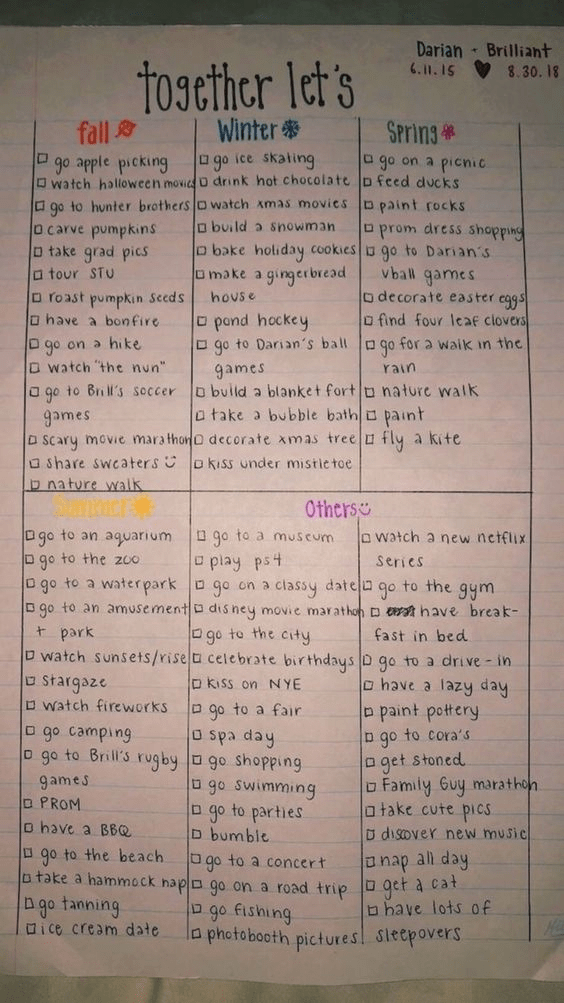 Darian + Brilliant
6.11.15 ♥ 8.30.18
together let's
fall
□ go apple picking
□ watch halloween movies
□ go to hunter brothers
□ carve pumpkins
□ take grad pics
□ tour STU
□ roast pumpkin seeds
□ have a bonfire
□ go on a hike
□ watch "the nun"
□ go to Brill's soccer
games
□ scary movie marathon
□ share sweaters :)
□ nature walk
Winter
□ go ice skating
□ drink hot chocolate
□ watch xmas movies
□ build a snowman
□ bake holiday cookies
□ make a gingerbread
house
□ pond hockey
□ go to Darian's ball
games
□ build a blanket fort
□ take a bubble bath
□ decorate xmas tree
□ kiss under mistletoe
Spring
□ go on a picnic
□ feed ducks
□ paint rocks
□ prom dress shopping
□ go to Darian's
vball games
□ decorate easter eggs
□ find four leaf clovers
□ go for a walk in the
rain
□ nature walk
□ paint
□ fly a kite
Summer
□ go to an aquarium
□ go to the zoo
□ go to a waterpark
□ go to an amusement
+ park
□ watch sunsets/rise
□ stargaze
□ watch fireworks
□ go camping
□ go to Brill's rugby
games
□ PROM
□ have a BBQ
□ go to the beach
□ take a hammock nap
□ go tanning
□ ice cream date
Others :)
□ go to a museum
□ play ps4
□ go on a classy date
□ disney movie marathon
□ go to the city
□ celebrate birthdays
□ kiss on NYE
□ go to a fair
□ spa day
□ go shopping
□ go swimming
□ go to parties
□ bumble
□ go to a concert
□ go on a road trip
□ go fishing
□ photobooth pictures
□ watch a new netflix
series
□ go to the gym
□ have break-
fast in bed
□ go to a drive-in
□ have a lazy day
□ paint pottery
□ go to cora's
□ get stoned
□ Family Guy marathon
□ take cute pics
□ discover new music
□ nap all day
□ get a cat
□ have lots of
sleepovers